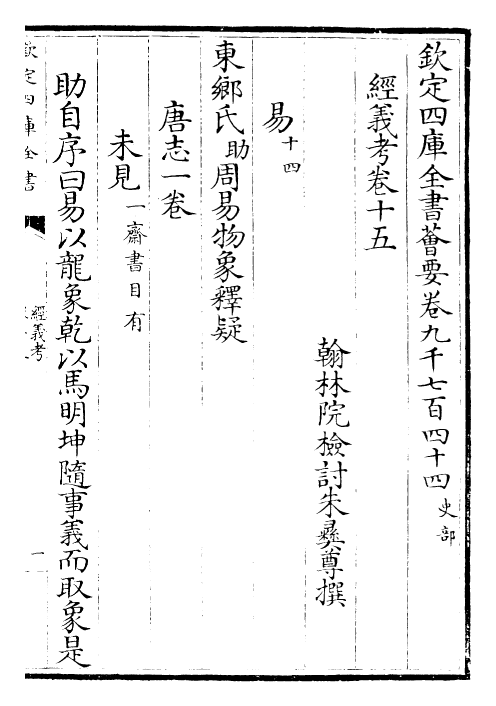 欽定四庫全書薈要卷九千七百四十四 史部
經義考卷十五
翰林院檢討朱彝尊撰
易十四
東鄉氏助周易物象釋疑
唐志一卷
未見一齋書目有
助自序曰易以龍象乾以馬明坤隨事義而取象是
欽定四庫全書
經義考
一